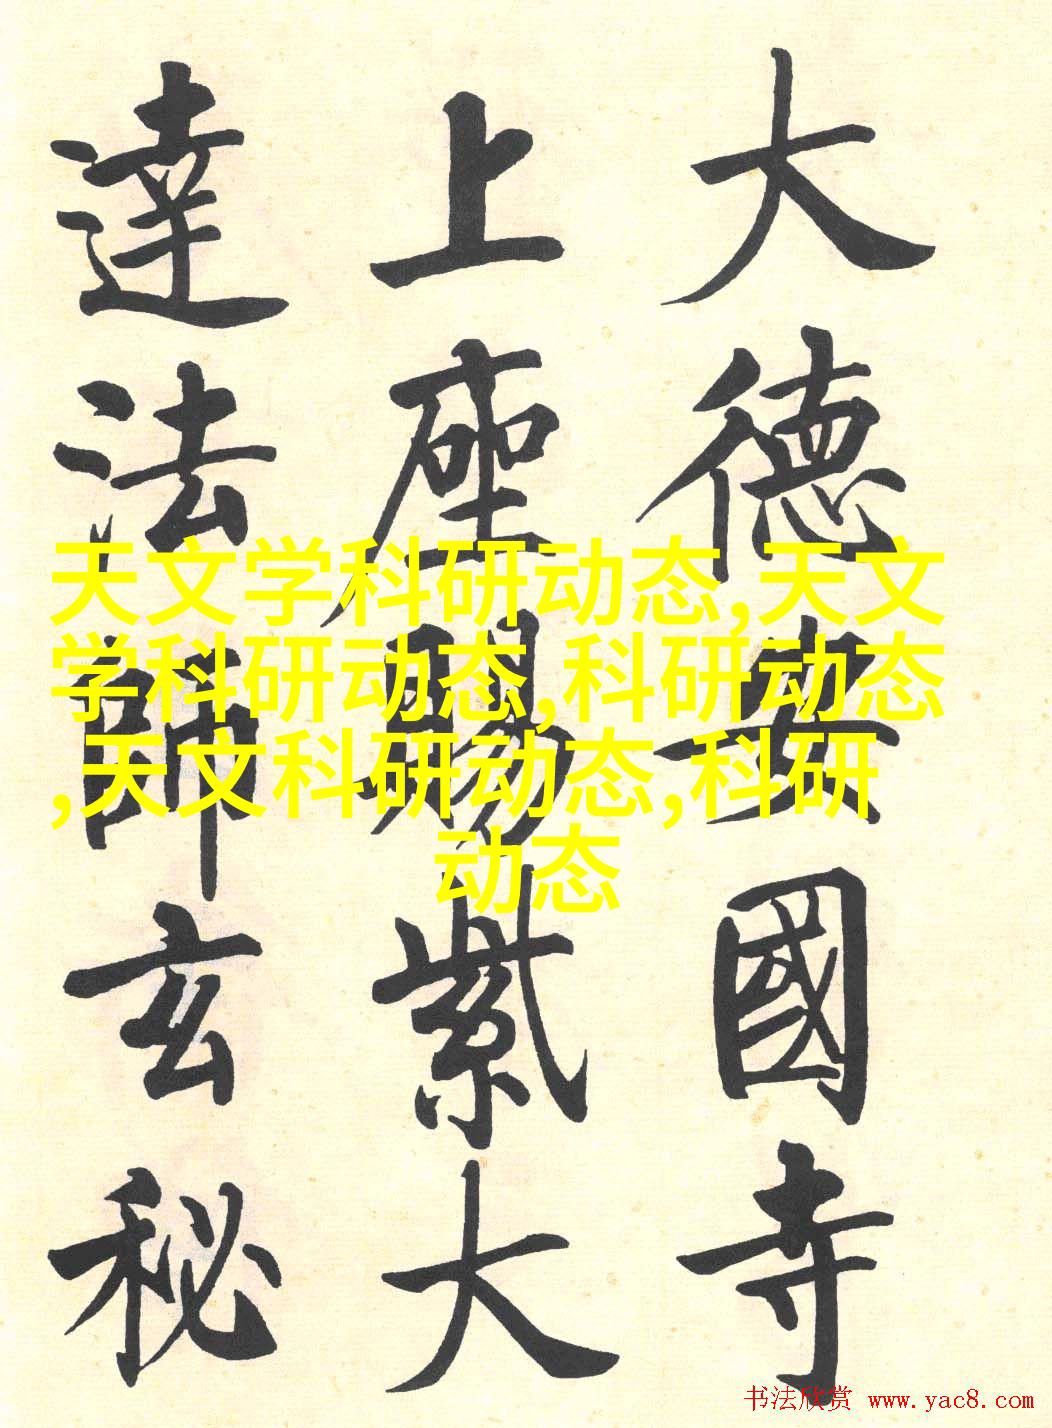 大德安國寺
上座賜紫大
達法師玄秘
天文学科研动态,天文
学科研动态,科研动态
,天文科研动态,科研
动态
书法欣赏 www.yac8.com